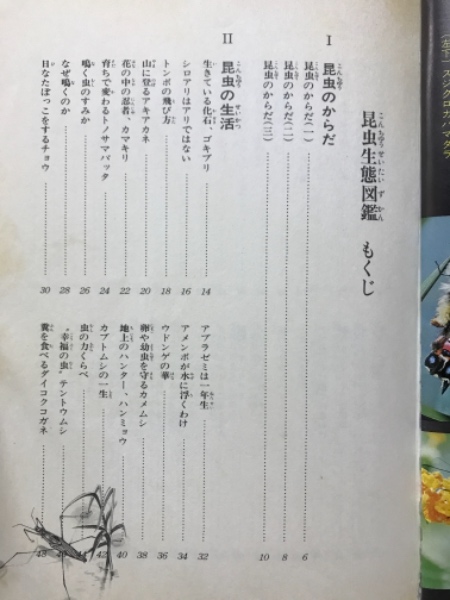 (左下)スジグロカバマダラ
昆虫生態図鑑 もくじ
I 昆虫のからだ
昆虫のからだ(一) 6
昆虫のからだ(二) 8
昆虫のからだ(三) 10
II 昆虫の生活
生きている化石、ゴキブリ 14
シロアリはアリではない 16
トンボの飛び方 18
山に登るアキアカネ 20
花の中の忍者、カマキリ 22
育ちで変わるトノサマバッタ 24
鳴く虫のすみか 26
なぜ鳴くのか 28
日なたぼっこをするチョウ 30
アブラゼミは一年生 32
アメンボが水に浮くわけ 34
ウドンゲの華 36
卵や幼虫を守るカメムシ 38
地上のハンター、ハンミョウ 40
カブトムシの一生 42
虫の力くらべ 44
“幸福の虫”テントウムシ 46
糞を食べるダイコクコガネ 48